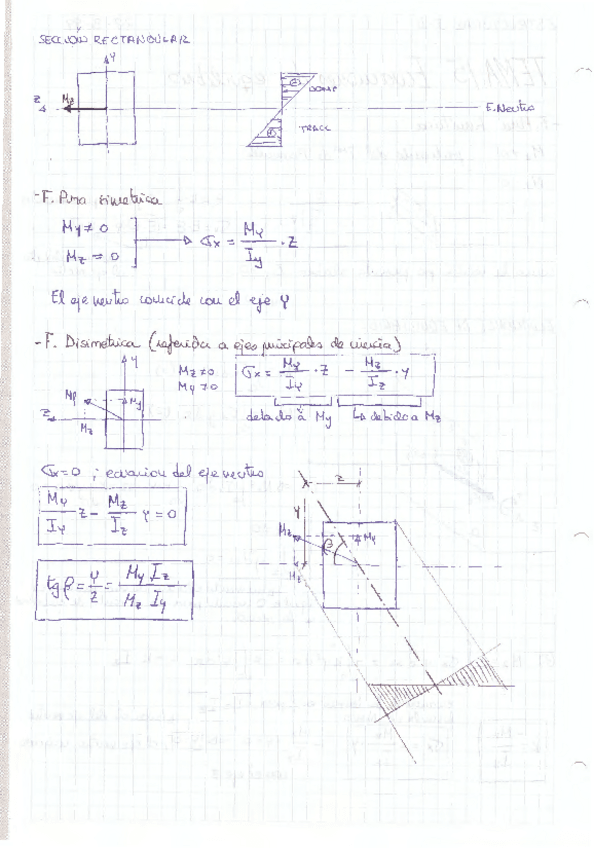 SECCIÓN RECTANGULAR
Y
Z
Mz
COMP
E. Neutro
TRACC
- F. Pura simetrica
My ≠ 0
Mz = 0
σx = My/Iy · z
El eje neutro coincide con el eje Y
- F. Disimetrica (referida a ejes principales de inercia)
Y
Mz ≠ 0
My ≠ 0
σx = My/Iy · z - Mz/Iz · y
Mf
My
Z
Mz
debido a My
debido a Mz
σx = 0 ; ecuacion del eje neutro
My/Iy z - Mz/Iz y = 0
z
y
β
My
Mz
tg β = y/z = My Iz / Mz Iy